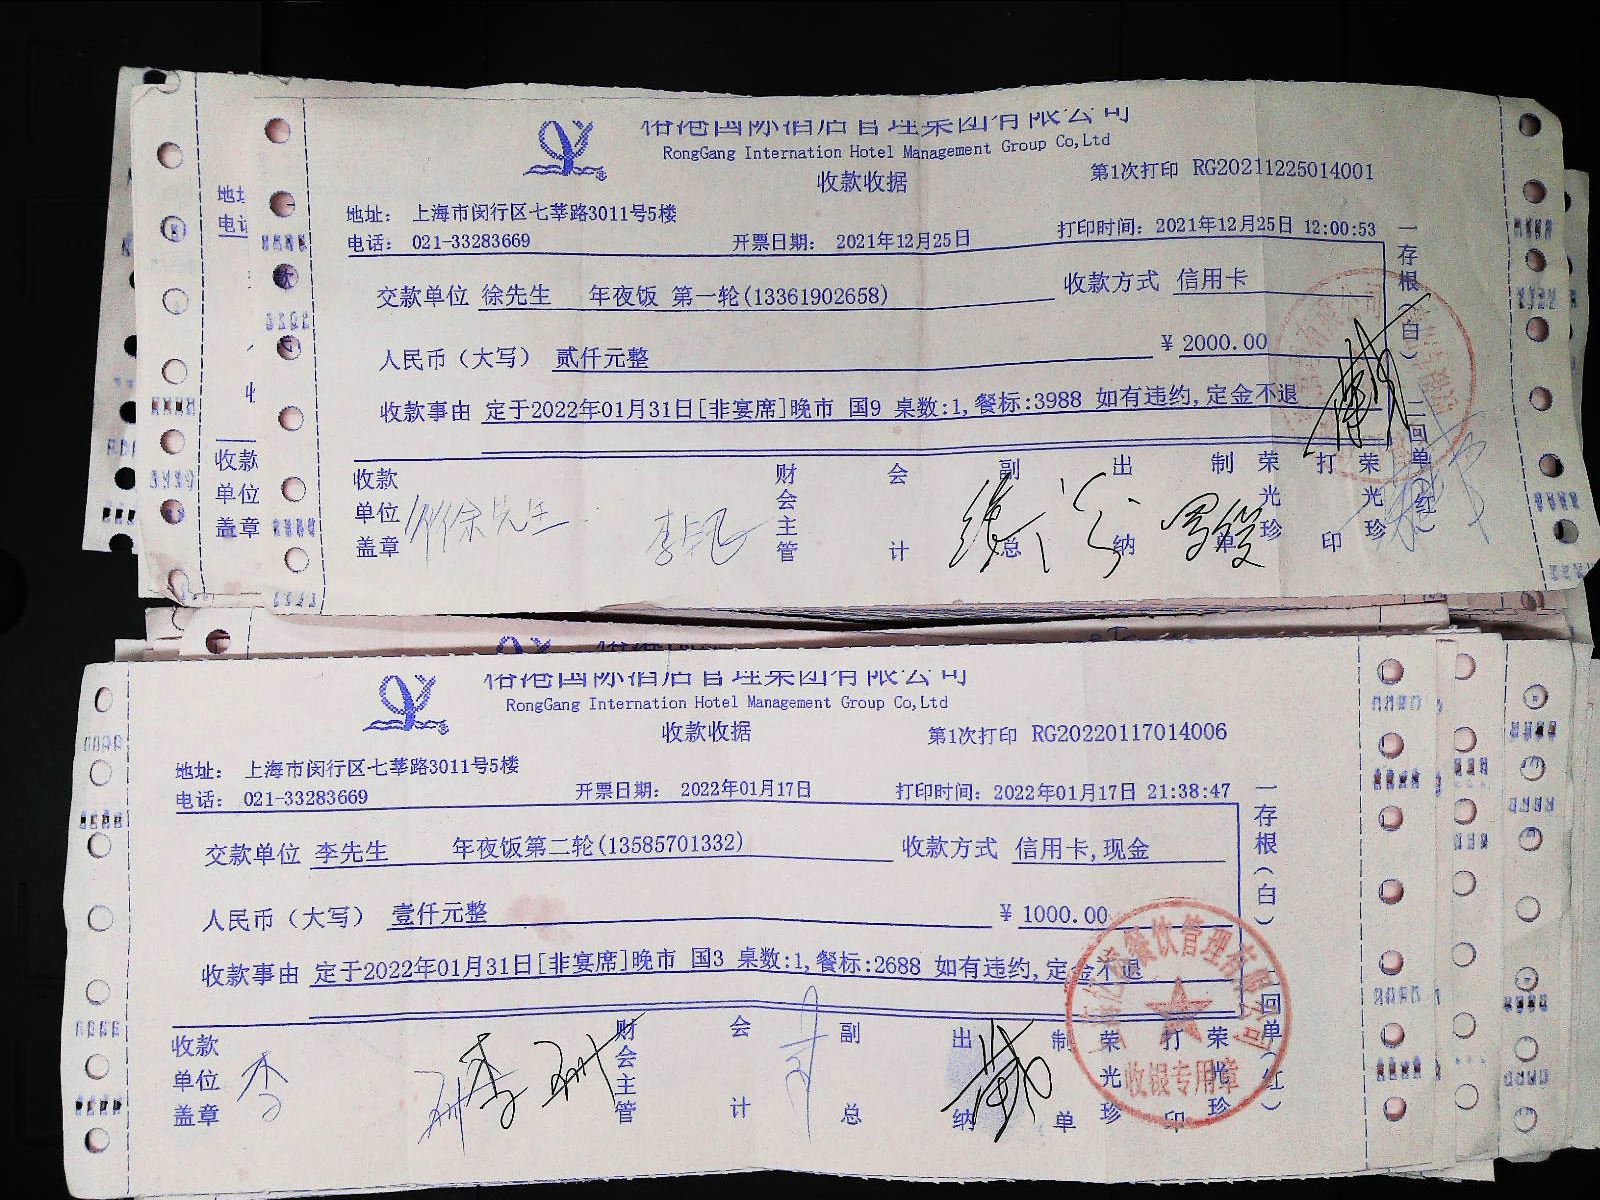 榕港国际酒店管理集团有限公司
RongGang Internation Hotel Management Group Co,Ltd
收款收据
第1次打印 RG20211225014001
地址： 上海市闵行区七莘路3011号5楼
电话： 021-33283669 开票日期： 2021年12月25日 打印时间：2021年12月25日 12:00:53
交款单位 徐先生 年夜饭 第一轮(13361902658) 收款方式 信用卡
人民币（大写） 贰仟元整 ￥ 2000.00
收款事由 定于2022年01月31日[非宴席]晚市 国9 桌数:1,餐标:3988 如有违约,定金不退
收款单位盖章 徐先生 财会主管 会计 副总 出纳 制单 荣光珍 打印 荣光珍
一存根（白） 二回单（红）
地址
电话
收款
单位
盖章
榕港国际酒店管理集团有限公司
RongGang Internation Hotel Management Group Co,Ltd
收款收据
第1次打印 RG20220117014006
地址： 上海市闵行区七莘路3011号5楼
电话： 021-33283669 开票日期： 2022年01月17日 打印时间：2022年01月17日 21:38:47
交款单位 李先生 年夜饭第二轮(13585701332) 收款方式 信用卡,现金
人民币（大写） 壹仟元整 ￥ 1000.00
收款事由 定于2022年01月31日[非宴席]晚市 国3 桌数:1,餐标:2688 如有违约,定金不退
收款单位盖章 李 财会主管 会计 副总 出纳 制单 荣光珍 打印 荣光珍
一存根（白） 二回单（红）
餐饮管理有限公司
收银专用章